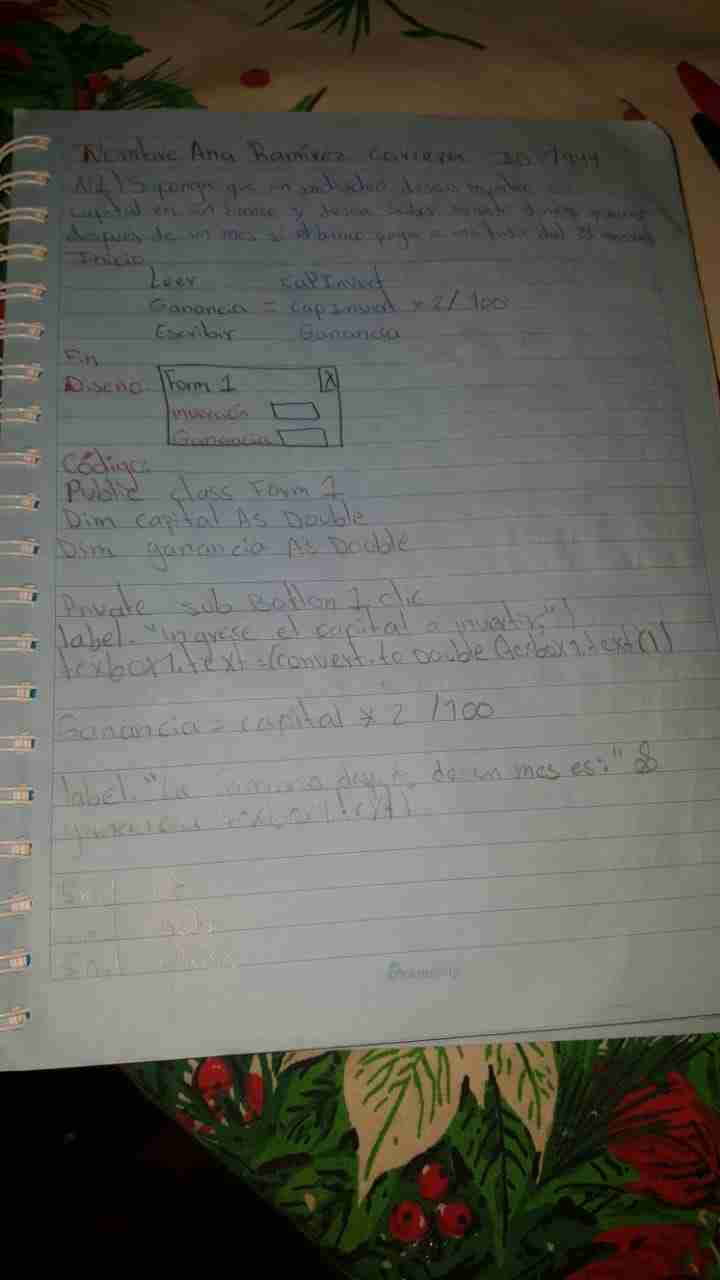 Nombre Ana Ramírez Carrera
que un individuo desea invertir su
capital en un banco y desea saber cuanto dinero ganara
despues de un mes si el banco paga a
Inicio
Leer capInvert
Ganancia = capInvert x 2/100
Escribir Ganancia
Fin
Diseño Form 1 X
Inversión
Ganancia
Código:
Public class Form 1
Dim capital As Double
Dim ganancia As Double
Private sub Botton 1 clic
label. "Ingrese el capital a invertir"
texbox1.text =(convert.to Double (texbox1.text())
Ganancia = capital x 2 /100
label. "La de un mes es:" &
End
End
End class